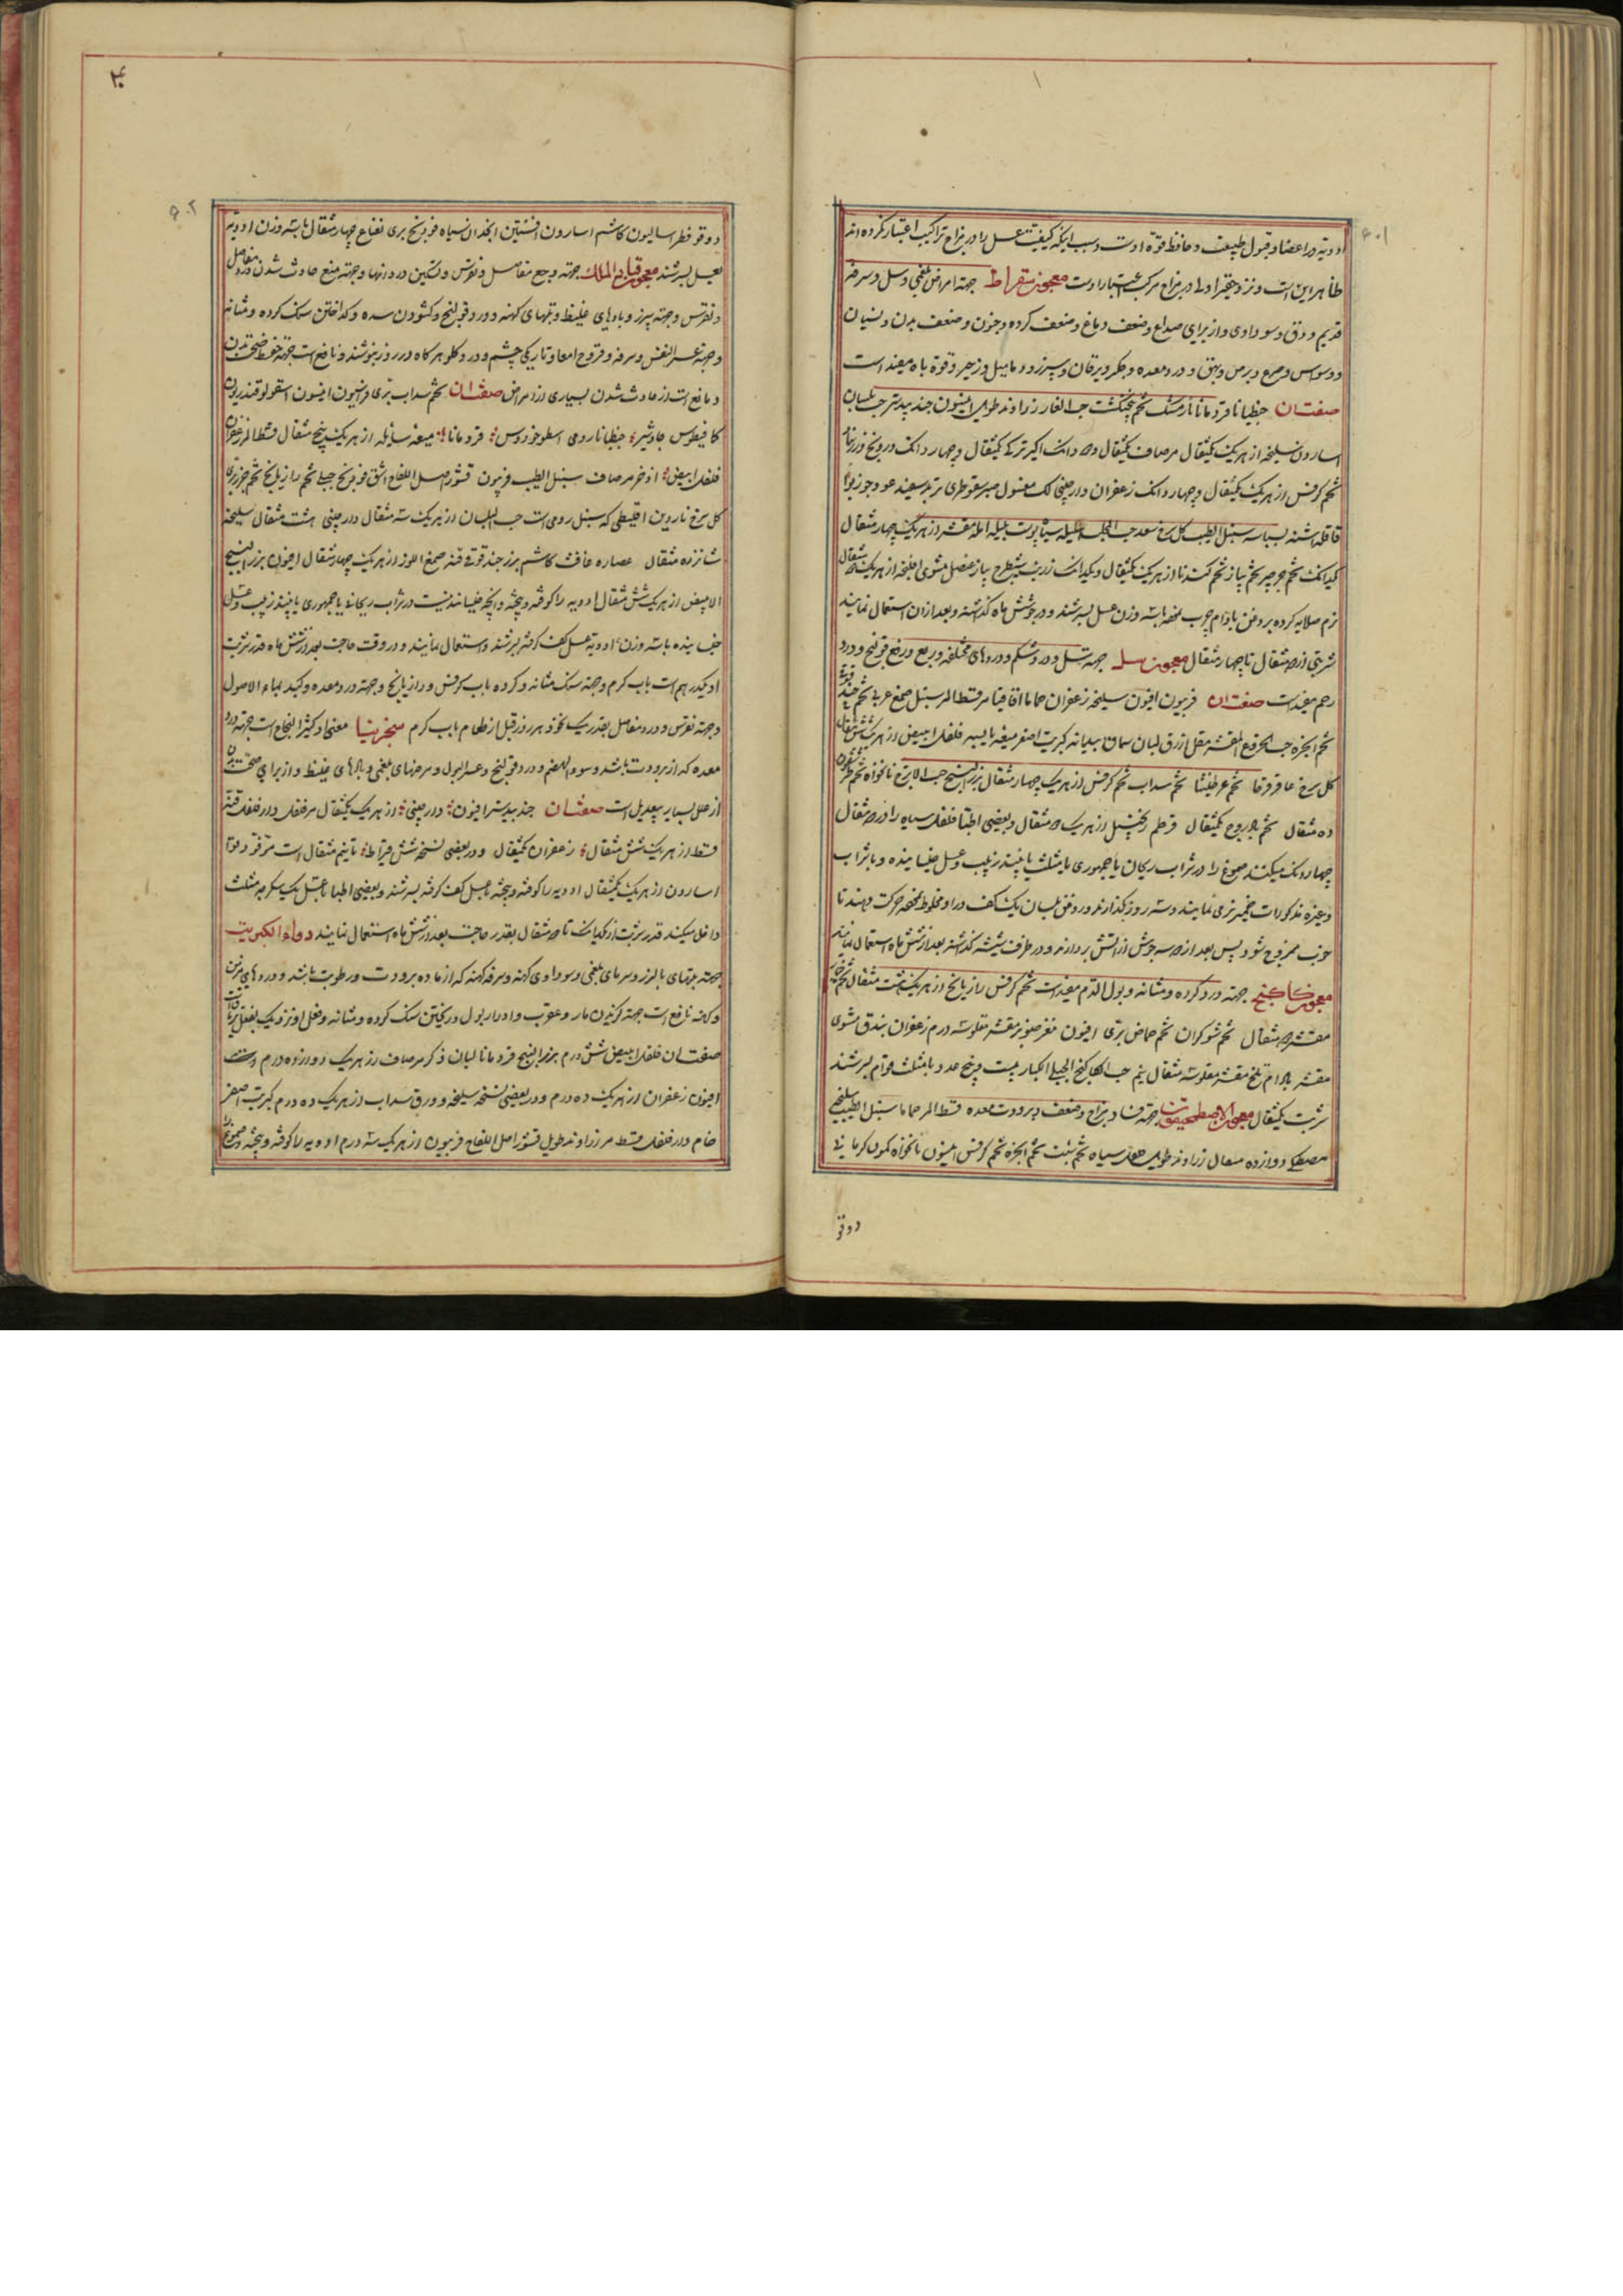 ۵۰۱
ادویه در اعضا و قبول طبیعت و حافظ قوة اوست و سبب اینکه کیفیت عسل را در مزاج تراکیب اعتبار نکرده اند
ظاهر این است و نزد حقیر اولی در مزاج مرکب اعتبار اوست معجون سقراط جهة امراض بلغمی و سل و سرفه
قدیم و دق و سوداوی و از برای صداع و ضعف دماغ و ضعف کرده و جنون و ضعف بدن و نسیان
و وسواس و صرع و برص و بهق و درد معده و جکر و یرقان و سپرز و دمامیل و زحیر و قوة باه مفید است
صفت ان جنطیانا قردمانا نارمشک تخم پنجنکشت حب الغار زراوند طویل انیسون جندبیدستر حب بلسان
اسارون سلیخه از هریک یکمثقال مر صاف یکمثقال و دانک اکیر ترکی یکمثقال و چهار دانک درونج زرنباد
تخم کرفس از هریک یکمثقال و چهار دانک زعفران دارچینی لک مغسول صبر سقوطری تربد سفید عود جوزبوا
قاقله اشنه بسباسه سنبل الطیب کل سرخ سعد حب هلیله سیاه پوست بلیله امله مقشر از هریک چهار مثقال
یکدانک تخم جرجیر تخم پیاز تخم کندنا از هریک یکمثقال و یکدانک زرنب شیطرج پیاز عنصل مشوی ابلخه از هریک مثقال
نرم صلایه کرده بروغن بادام چرب نموده باسه وزن عسل بسرشند و در جو شش ماه کذاشته و بعد از ان استعمال نمایند
شربتی از مثقال تا چهار مثقال معجون سل جهة سل و درد شکم و دردهای مختلفه و ربع و رفع قولنج و درد
رحم مفید است صفت ان فربیون افیون سلیخه زعفران حماما اقاقیا مر قسط المر سنبل صمغ عربی تخم
تخم انجره حب الخروع المقشر مقل ازرق لبان سماق بیدانه کبریت اصفر میعه یابسه فلفل ابیض از هریک شش مثقال
کل سرخ عاقرقرحا تخم عرطنیثا تخم سداب تخم کرفس از هریک چهار مثقال بزرالبنج حب الاترج نانخواه تخم
ده مثقال تخم یبروج یکمثقال قرطم زنجبیل از هریک مثقال و بعضی اطبا فلفل سیاه را مثقال
چهار دانک میکنند صموغ را در شراب ریحان یا جمهوری یا مثلث یا نبیذ زبیب و عسل خیسانیده و با شراب
و غیره مذکورات خمیر نرمی نمایند و سه روز بکذارند و روغن بلسان یک کف در او مخلوط نموده حرکت دهند تا
خوب ممزوج شود پس بعد از سه جوش از اتش بردارند و در ظرف شیشه کذاشته بعد از شش ماه استعمال نمایند
معجون کاکنج جهة درد کرده و مثانه و بول الدم مفید است تخم کرفس رازیانج از هریک هشت مثقال تخم خیار
مقشر مثقال تخم شوکران تخم حماض بری افیون مغز صنوبر مقشر مقلو سه درم زعفران بندق مشوی
مقشر بادام تلخ مقشر مقلو سه مثقال نیم حب الکاکنج الجبلی الکبار بیست و پنج عدد با مثلث قوام بسرشند
شربت یکمثقال معجون الاصطمحیقون جهة فساد مزاج و ضعف و برودت معده قسط المر حماما سنبل الطیب سلیخه
مصطکی دوازده مثقال زراوند طویل فلفل سیاه تخم شبت تخم انجره تخم کرفس انیسون نانخواه کمون کرمانی
دوقو
۵۰۲
دوقو فطراسالیون کاشم اسارون افسنتین انجدان سیاه فودنج بری نعناع چهار مثقال باسه وزن ادویه
بعسل بسرشند معجون قباد الملک جهة وجع مفاصل و نقرس و تسکین درد انها و جهة منع حادث شدن درد مفاصل
و نقرس و جهة سپرز و بادهای غلیظ و تبهای کهنه و درد قولنج و کشودن سده و کداختن سنک کرده و مثانه
و جهة عسر النفس و سرفه و قروح امعا و تاریکی چشم و درد کلو هر کاه در روز بنوشند و نافع است جهة حفظ صحت بدن
و مانع است از حادث شدن بسیاری از امراض صفت ان تخم سداب بری فراسیون افیون اسقولوقندریون
کمافیطوس جاوشیر جنطیانا رومی اسطوخودوس قردمانا میعه سایله از هریک پنج مثقال قسط المر زعفران
فلفل ابیض اذخر مر صاف سنبل الطیب فربیون قشور اصل اللفاح اشق فودنج جبلی تخم رازیانج تخم جزر بری
کل سرخ ناردین اقلیطی که سنبل رومی است حب البلسان از هریک سه مثقال دارچینی هشت مثقال سلیخه
شانزده مثقال عصاره غافث کاشم بزر حندقوقی قنه صمغ اللوز از هریک چهار مثقال افیون بزر البنج
الابیض از هریک شش مثقال ادویه را کوفته و بیخته و انچه خیسانیدنیست در شراب ریحانی یا جمهوری یا نبیذ زبیب و عسل
خیسانیده باسه وزن ادویه عسل کف کرفته بسرشند و استعمال نمایند و در وقت حاجت بعد از شش ماه قدر شربت
او یکدرهم است باب کرم و جهة سنک مثانه و کرده باب کرفس و رازیانج و جهة درد معده و کبد بماء الاصول
و جهة نقرس و درد مفاصل بقدر یک نخود هر روز قبل از طعام باب کرم سنجرینیا معنی او کثیر النجاح است جهة درد
معده که از برودت باشد و سوء الهضم و درد قولنج و عسر البول و مرضهای بلغمی و بادهای غلیظ و از برای صحت بدن
از علل بسیار بیعدیل است صفت ان جندبیدستر افیون دارچینی از هریک یکمثقال مر فلفل دارفلفل قنه
قسط از هریک شش مثقال زعفران یکمثقال و در بعضی نسخه شش قیراط تا نیم مثقال است مو فو دوقو
اسارون از هریک یکمثقال ادویه را کوفته و بیخته با عسل کف کرفته بسرشند و بعضی اطبا با عسل یک سکرجه مثلث
داخل میکنند قدر شربت از یکدانک تا مثقال بقدر حاجت بعد از شش ماه استعمال نمایند دواء الکبریت
جهة تبهای بالرز و سرمای بلغمی و سوداوی کهنه و سرفه کهنه که از ماده برودت و رطوبت باشد و دردهای مزمن
و کهنه نافع است جهة کزیدن مار و عقرب و ادرار بول و ریختن سنک کرده و مثانه و فعل او نزدیک بفعل تریاق است
صفت ان فلفل ابیض شش درم بزر البنج قردمانا لبان ذکر مر صاف از هریک دوازده درم است
افیون زعفران از هریک ده درم و در بعضی نسخه سلیخه و ورق سداب از هریک ده درم کبریت اصفر
خام دارفلفل قسط مر زراوند طویل قشور اصل اللفاح فربیون از هریک سه درم ادویه را کوفته و بیخته و صموغ را